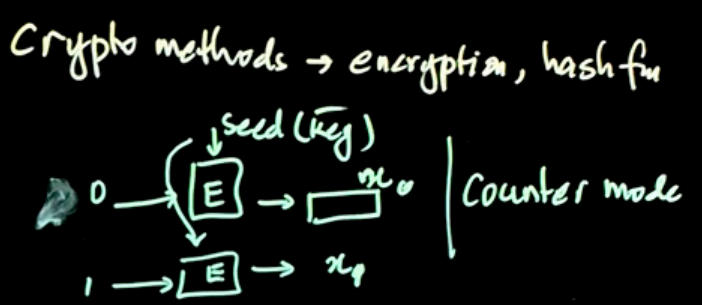 Crypto methods → encryption, hash fn
seed (key)
0 → E → x₀
Counter mode
1 → E → x₁